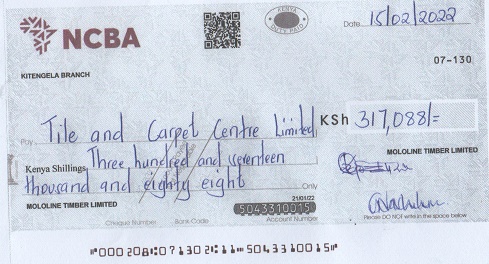 NCBA
KENYA
DUTY PAID
Date 15/02/2022
07-130
KITENGELA BRANCH
Pay Tile and Carpet Centre Limited KSh 317,088/=
Kenya Shillings Three hundred and seventeen
thousand and eighty eight Only
MOLOLINE TIMBER LIMITED
MOLOLINE TIMBER LIMITED
21/01/22
5043310015
Cheque Number Bank Code Account Number
Please DO NOT write in the space below
"000208"07130211"5043310015"